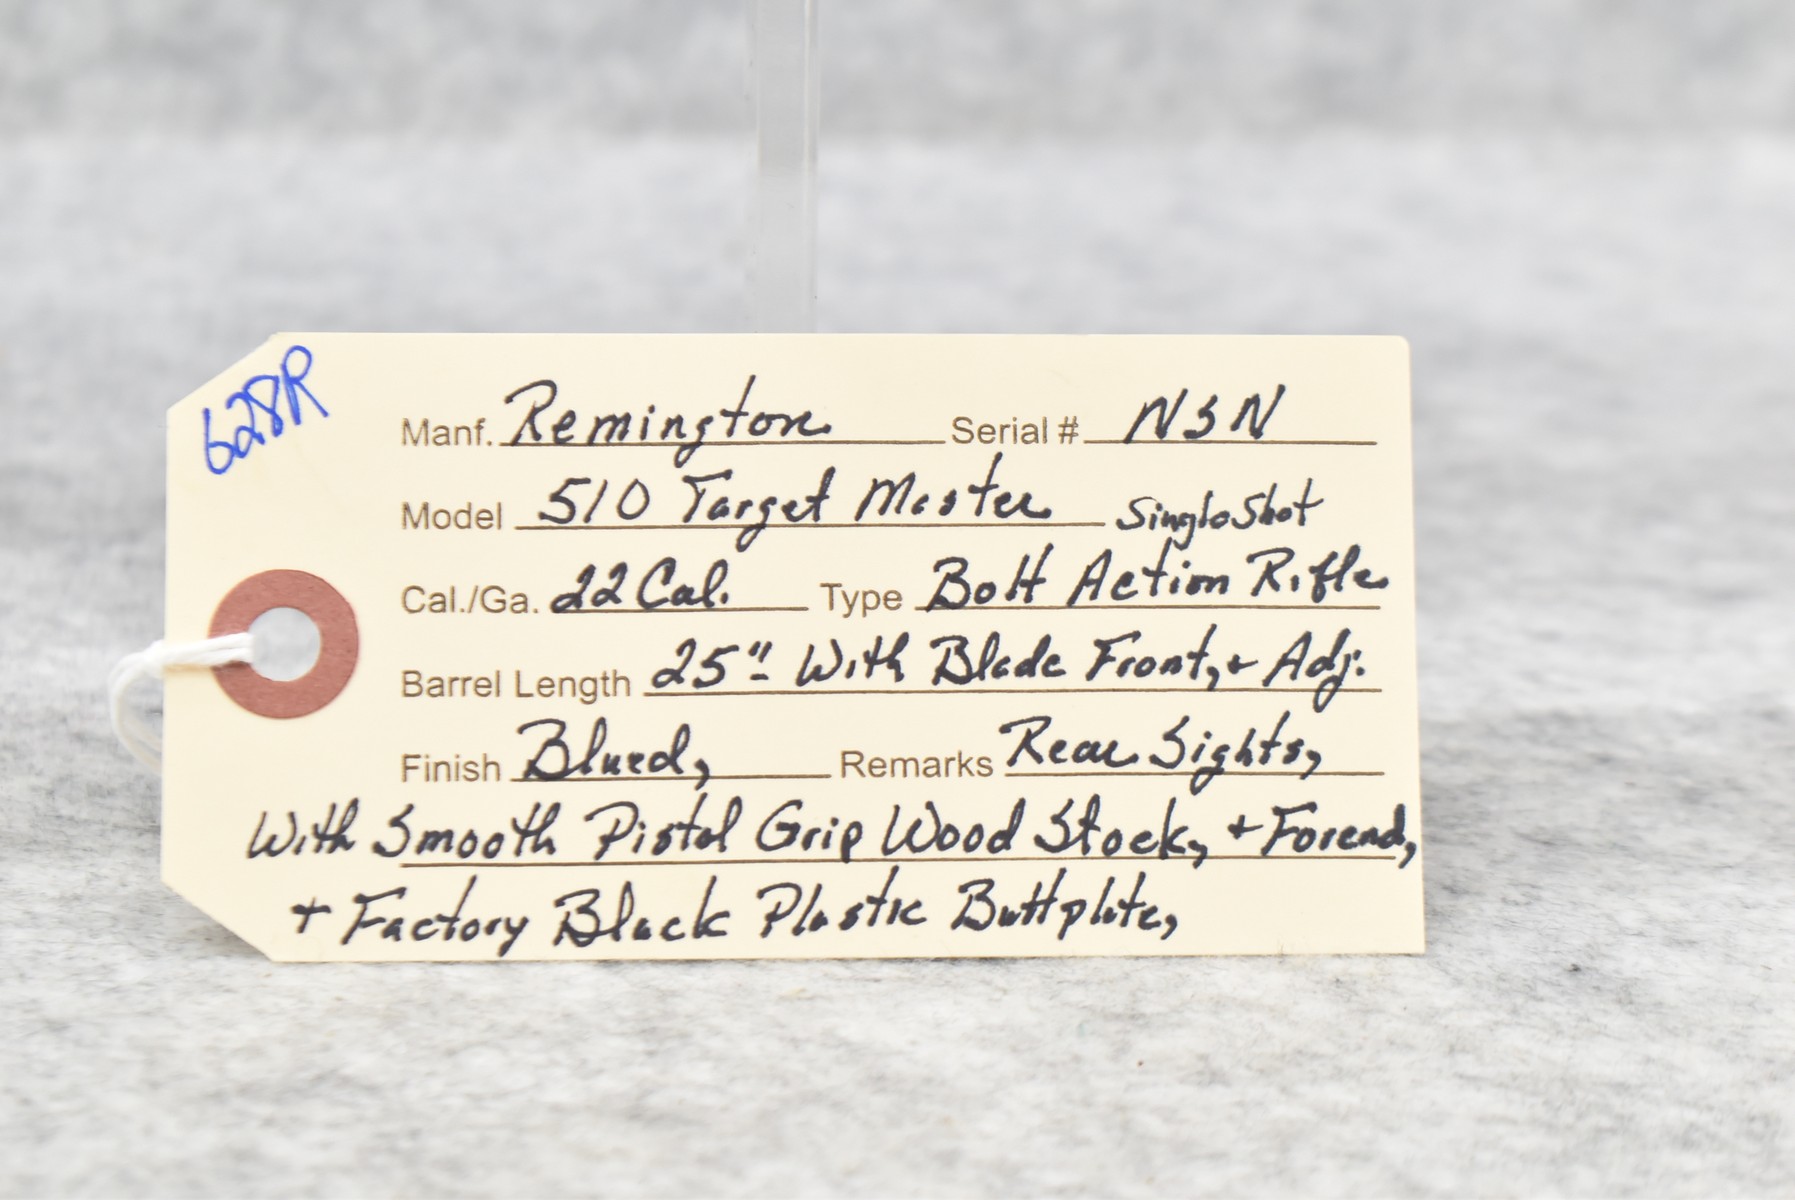 628R
Manf. Remington Serial # NSN
Model 510 Target Master Single Shot
Cal./Ga. 22 Cal. Type Bolt Action Rifle
Barrel Length 25" With Blade Front, + Adj.
Finish Blued, Remarks Rear Sights,
With Smooth Pistol Grip Wood Stock, + Forend,
+ Factory Black Plastic Buttplate,